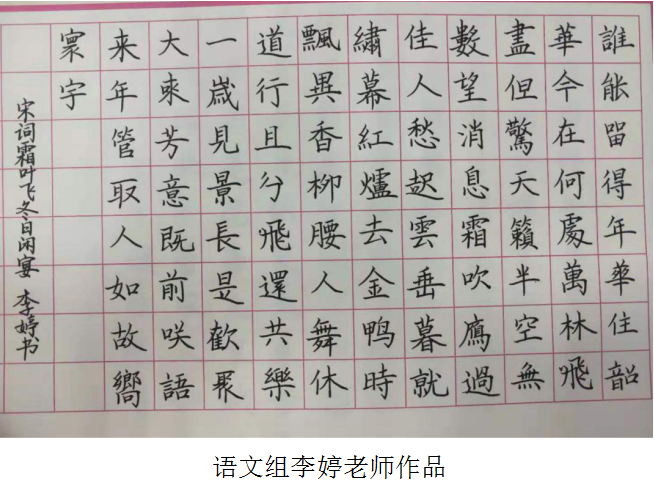 誰能留得年華住韶
華今在何處萬林飛
盡但驚天籟半空無
數望消息霜吹鷹過
佳人愁起雲垂暮就
繡幕紅爐去金鸭時
飄異香柳腰人舞休
道行且分飛還共樂
一歲見景長是歡聚
大來芳意既前咲語
来年管取人如故嚮
寰宇
宋词霜叶飞冬日闲宴 李婷书
语文组李婷老师作品